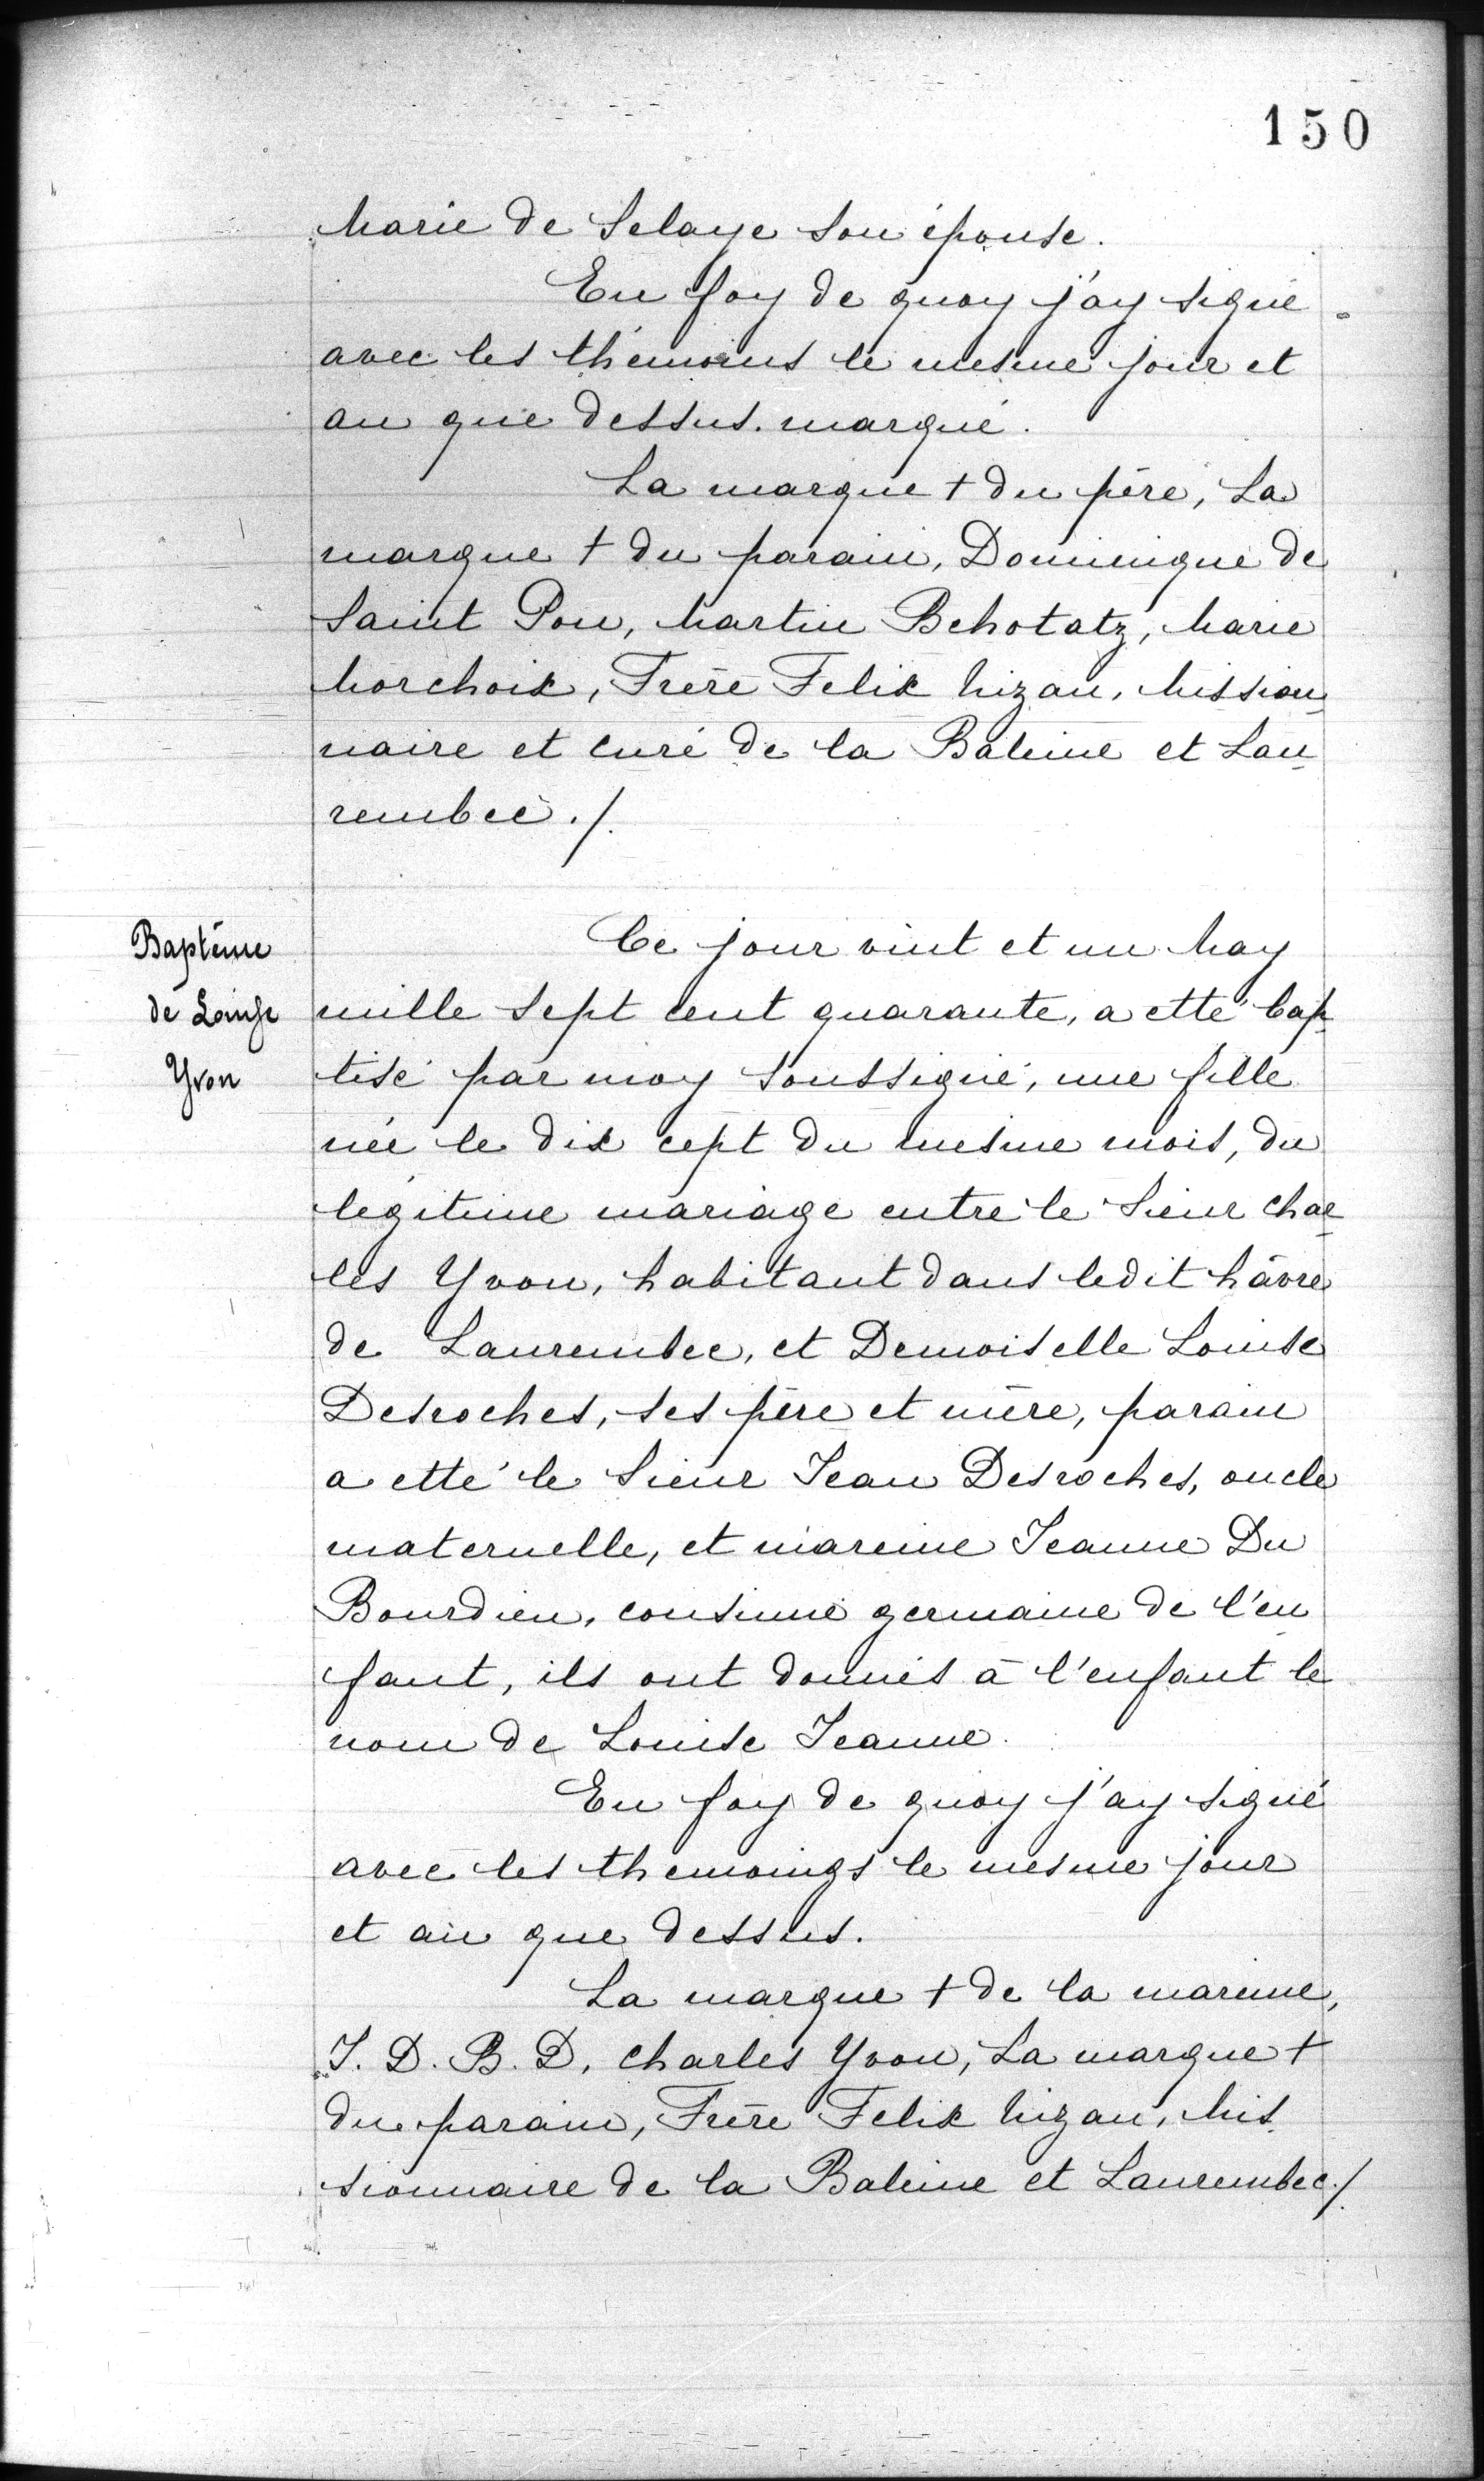 150
Marie de Selaye son épouse.
En foy de quoy j'ay signé
avec les thémoins le mesme jour et
an que dessus. marqué.
La marque + du père, La
marque + du parain, Dominique de
Saint Pou, Martin Behotatz, Marie
Morchoix, Frère Felix Nizan, Mission
naire et curé de la Baleine et Lau
rembec./.
Baptême
de Louise
Yvon
Ce jour vint et un May
mille sept cent quarante, a etté bap
tisé par moy soussigné, une fille
née le dix cept du mesme mois, du
légitime mariage entre le Sieur Char
les Yvon, habitant dans ledit hâvre
de Laurembec, et Demoiselle Louise
Desroches, ses père et mère, parain
a etté le Sieur Jean Desroches, oncle
maternelle, et mareine Jeanne Du
Bourdieu, cousinne germaine de l'en
fant, ils ont donnés à l'enfant le
nom de Louise Jeanne.
En foy de quoy j'ay signé
avec les themoings le mesme jour
et an que dessus.
La marque + de la mareine,
J. D. B. D. Charles Yvon, La marque +
du parain, Frère Felix Nizan, Mis
sionnaire de la Baleine et Laurembec./.